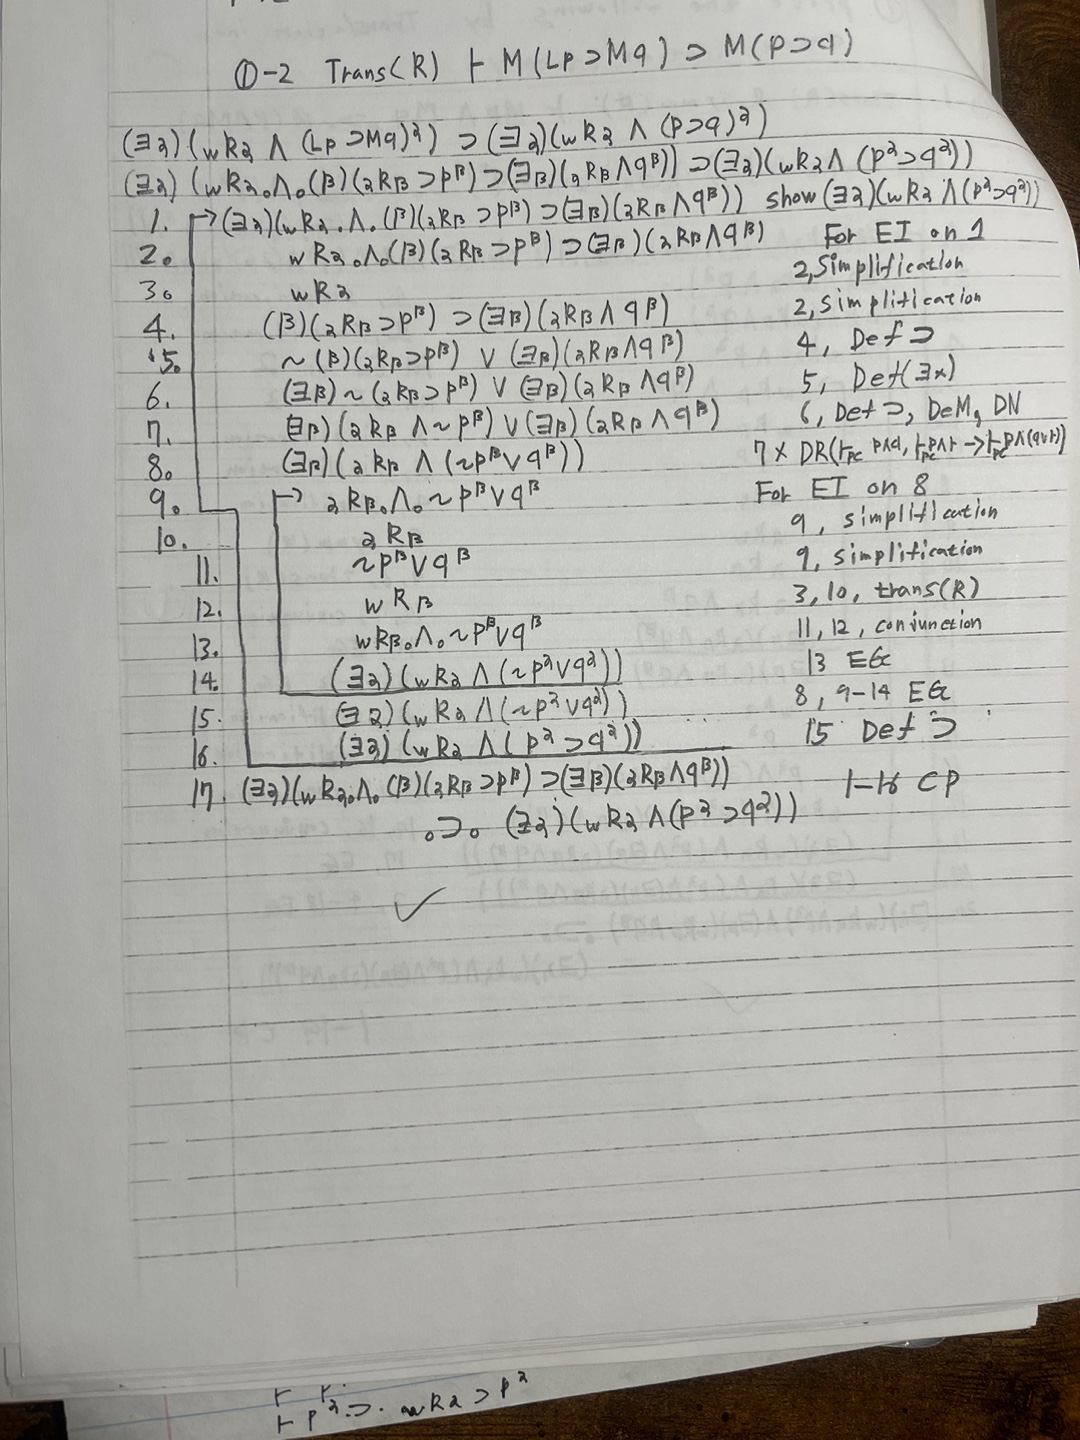 ①-2 Trans(R) ⊢ M(Lp⊃Mq) ⊃ M(p⊃q)
(∃α)(wRα ∧ (Lp⊃Mq)^α) ⊃ (∃α)(wRα ∧ (p⊃q)^α)
(∃α)(wRα.∧.(β)(αRβ⊃p^β)⊃(∃β)(αRβ∧q^β)) ⊃ (∃α)(wRα∧(p^α⊃q^α))
1. (∃α)(wRα.∧.(β)(αRβ⊃p^β)⊃(∃β)(αRβ∧q^β)) show (∃α)(wRα∧(p^α⊃q^α))
2. wRα.∧.(β)(αRβ⊃p^β)⊃(∃β)(αRβ∧q^β) For EI on 1
3. wRα 2, Simplification
4. (β)(αRβ⊃p^β)⊃(∃β)(αRβ∧q^β) 2, simplification
5. ~(β)(αRβ⊃p^β)∨(∃β)(αRβ∧q^β) 4, Def⊃
6. (∃β)~(αRβ⊃p^β)∨(∃β)(αRβ∧q^β) 5, Def(∃x)
7. (∃β)(αRβ∧~p^β)∨(∃β)(αRβ∧q^β) 6, Def⊃, DeM, DN
8. (∃β)(αRβ∧(~p^β∨q^β)) 7 × DR(⊢PC p∧q, ⊢PC p∧r → ⊢PC p∧(q∨r))
9. αRβ.∧.~p^β∨q^β For EI on 8
10. αRβ 9, simplification
11. ~p^β∨q^β 9, simplification
12. wRβ 3, 10, trans(R)
13. wRβ.∧.~p^β∨q^β 11, 12, conjunction
14. (∃α)(wRα∧(~p^α∨q^α)) 13 EG
15. (∃α)(wRα∧(~p^α∨q^α)) 8, 9-14 EG
16. (∃α)(wRα∧(p^α⊃q^α)) 15 Def⊃
17. (∃α)(wRα.∧.(β)(αRβ⊃p^β)⊃(∃β)(αRβ∧q^β)) 1-16 CP
.⊃. (∃α)(wRα∧(p^α⊃q^α))
✓
⊢ p^α.⊃. wRα⊃p^α